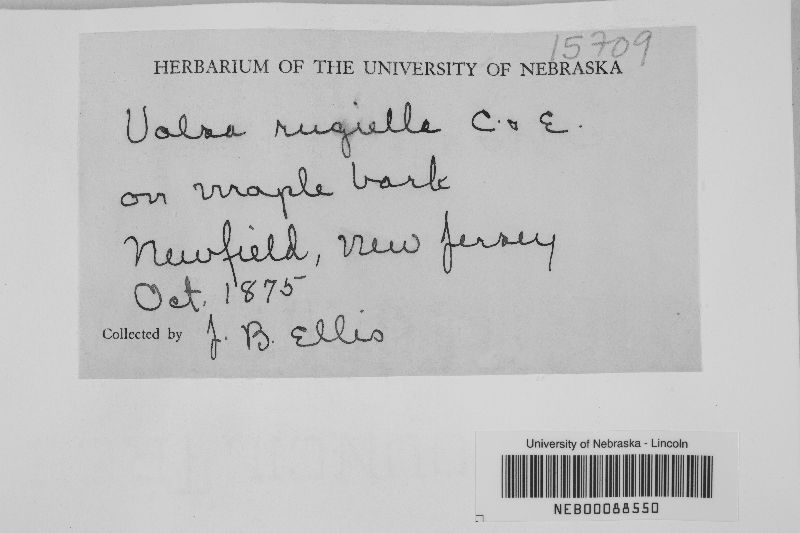 15709
HERBARIUM OF THE UNIVERSITY OF NEBRASKA
Valsa rugiella C. & E.
on maple bark
Newfield, New Jersey
Oct. 1875
Collected by J. B. Ellis
University of Nebraska - Lincoln
NEB00088550